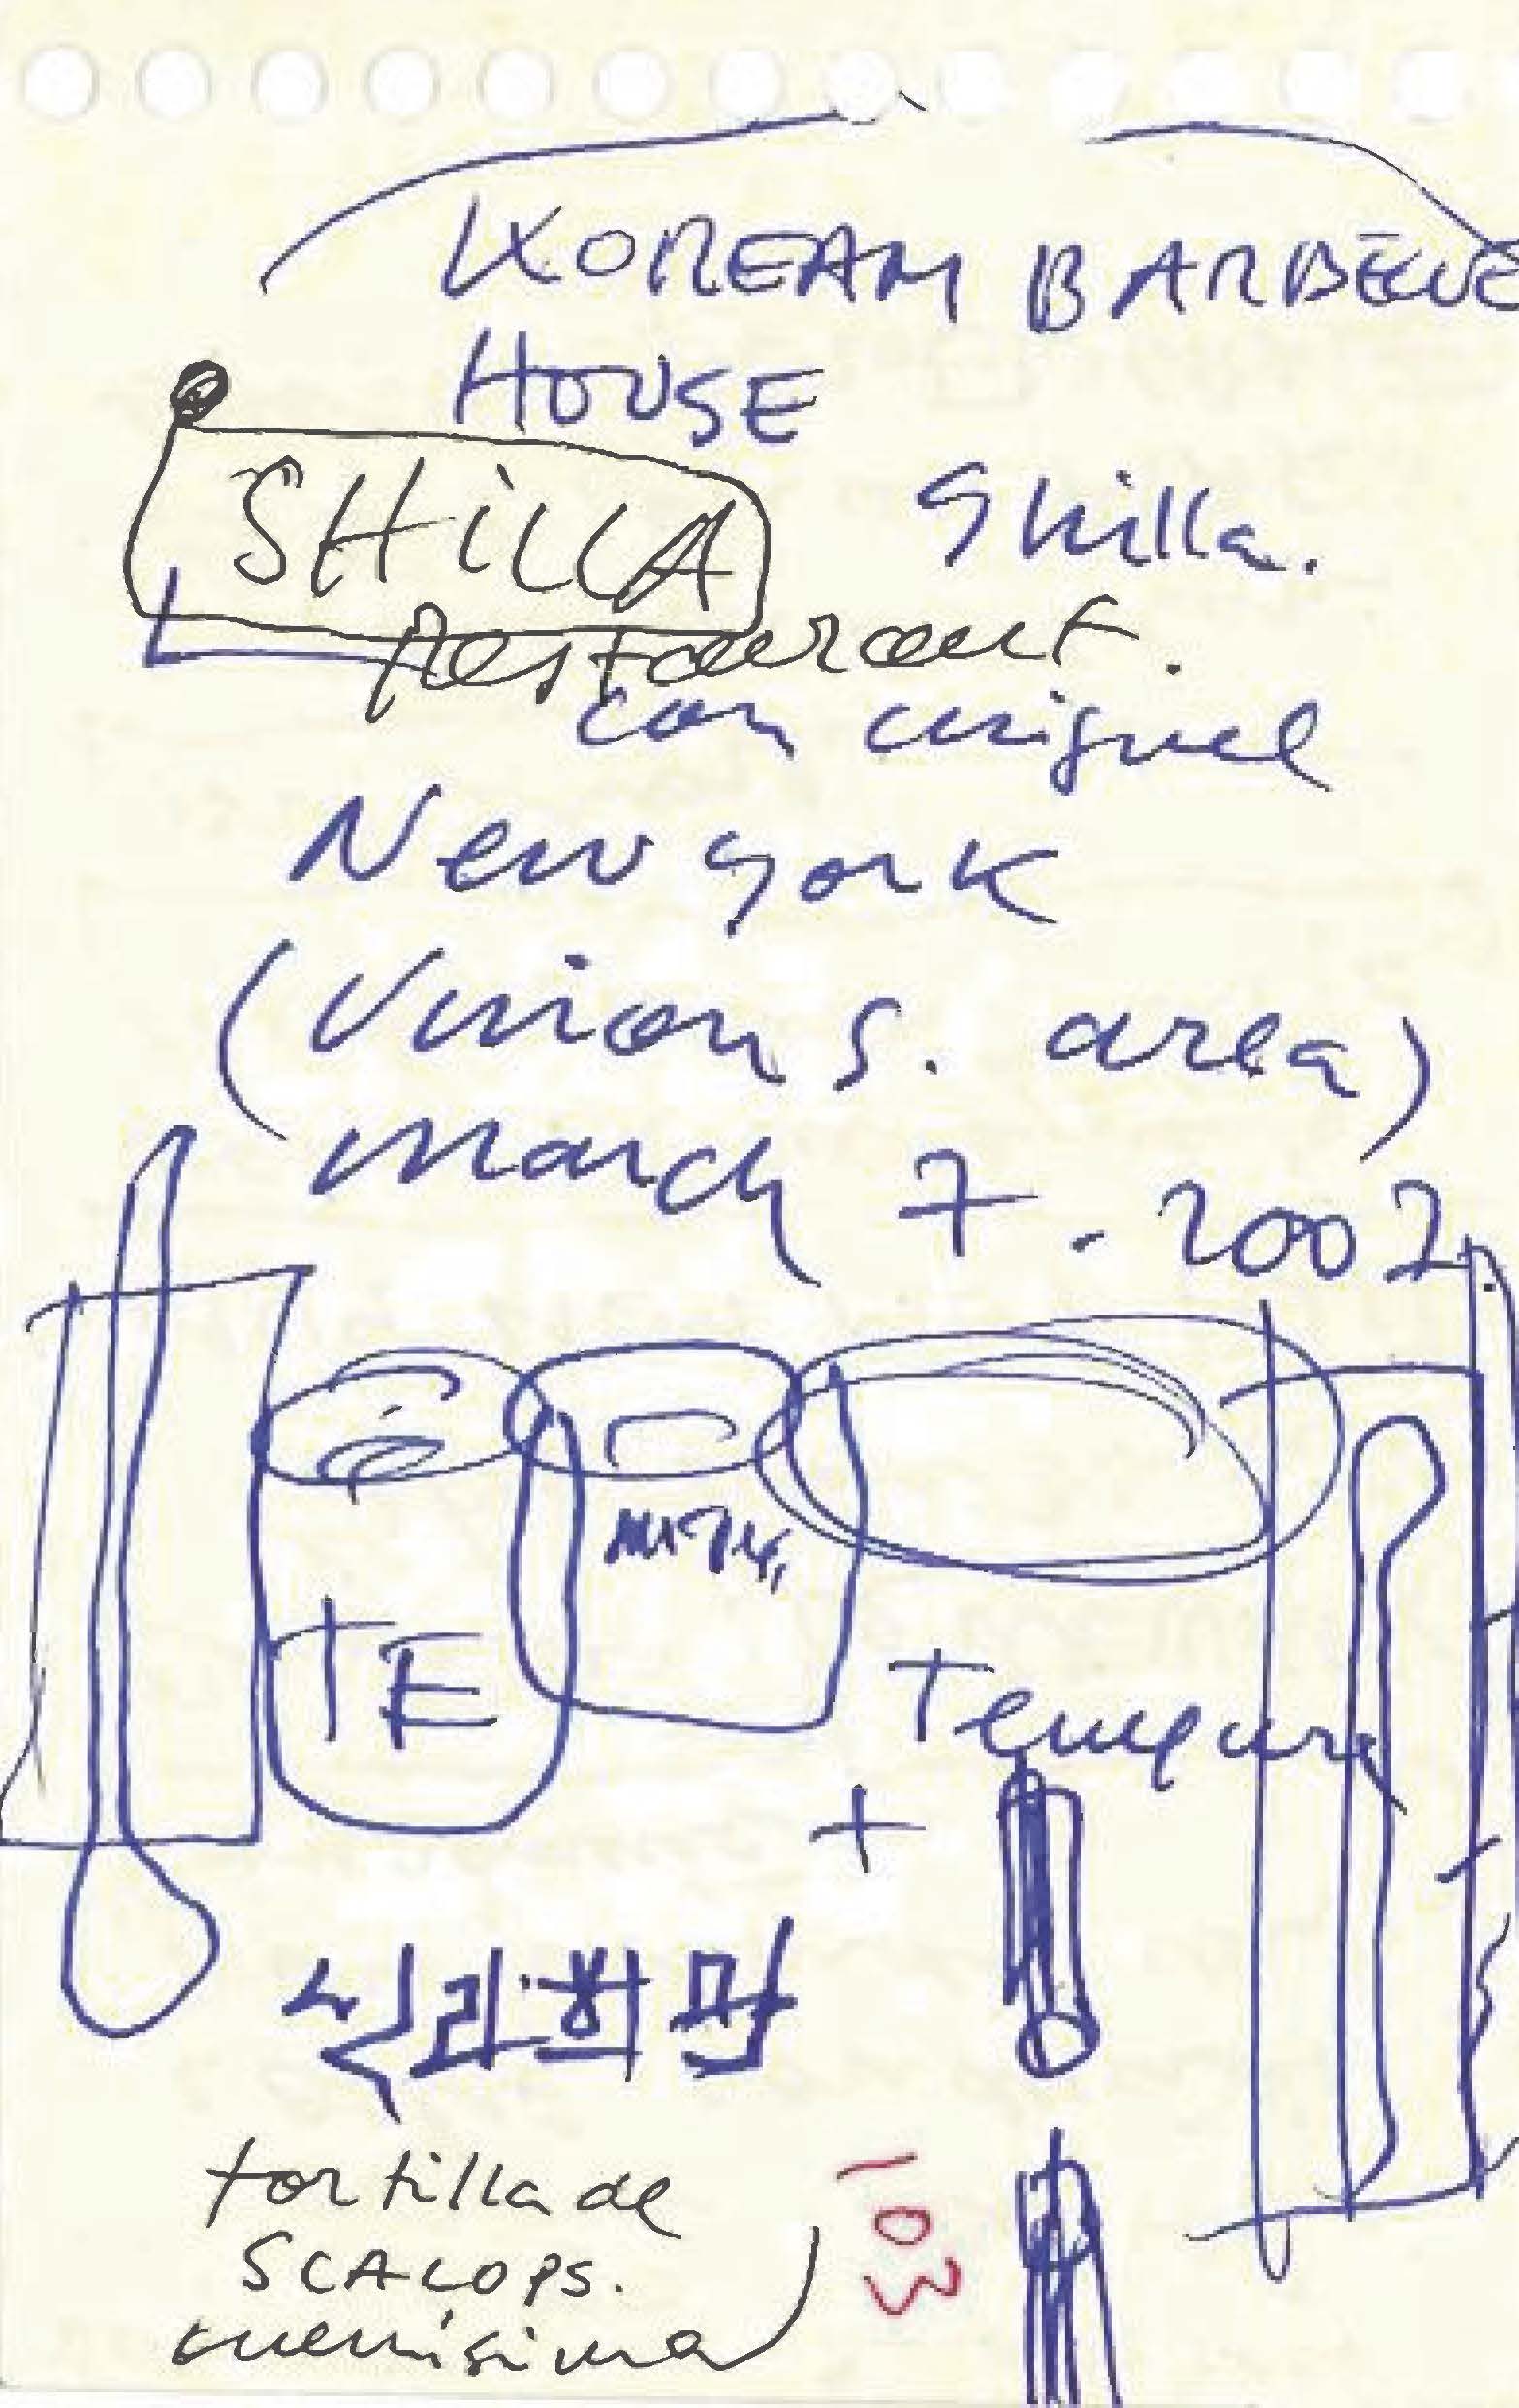 KOREAN BARBECUE
HOUSE
SHILLA Shilla.
Restaurant.
con miguel
New york
(Union S. area)
March 7. 2002.
TE
Tempura
+
신라회관
tortilla de
SCALOPS.
buenísima
103